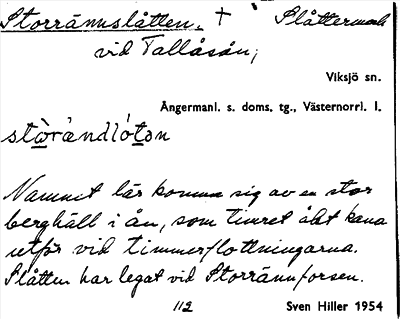 Storrännslåtten. + Slåttermark
vid Tallåsån;
Viksjö sn.
Ångermanl. s. doms. tg., Västernorrl. l.
stòràndlótən
Namnet lär komma sig av en stor
berghäll i ån, som timret åkt kana
utför vid timmerflottningarna.
Slåtten har legat vid Storrännforsen.
112 Sven Hiller 1954